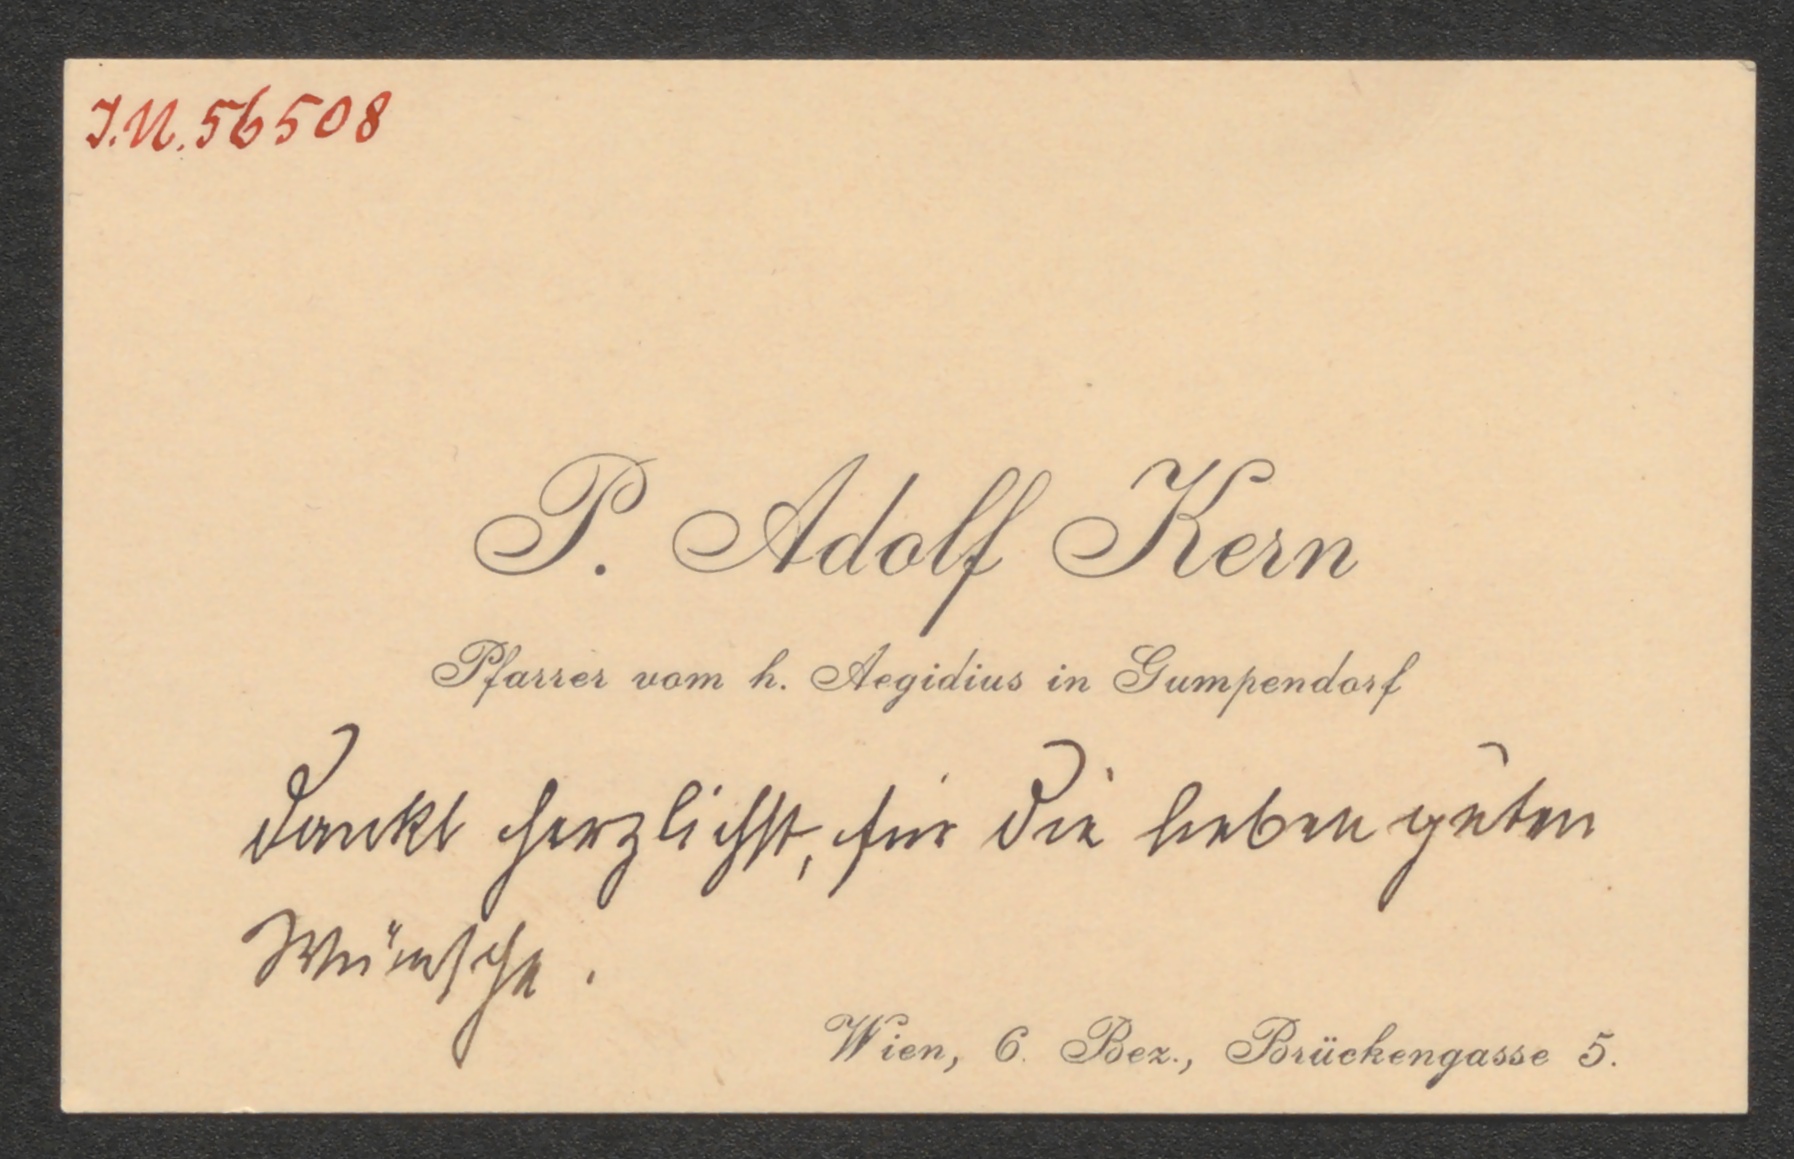 J.N. 56508
P. Adolf Kern
Pfarrer vom h. Aegidius in Gumpendorf
dankt herzlichst, für die lieben guten
Wünsche.
Wien, 6. Bez., Brückengasse 5.